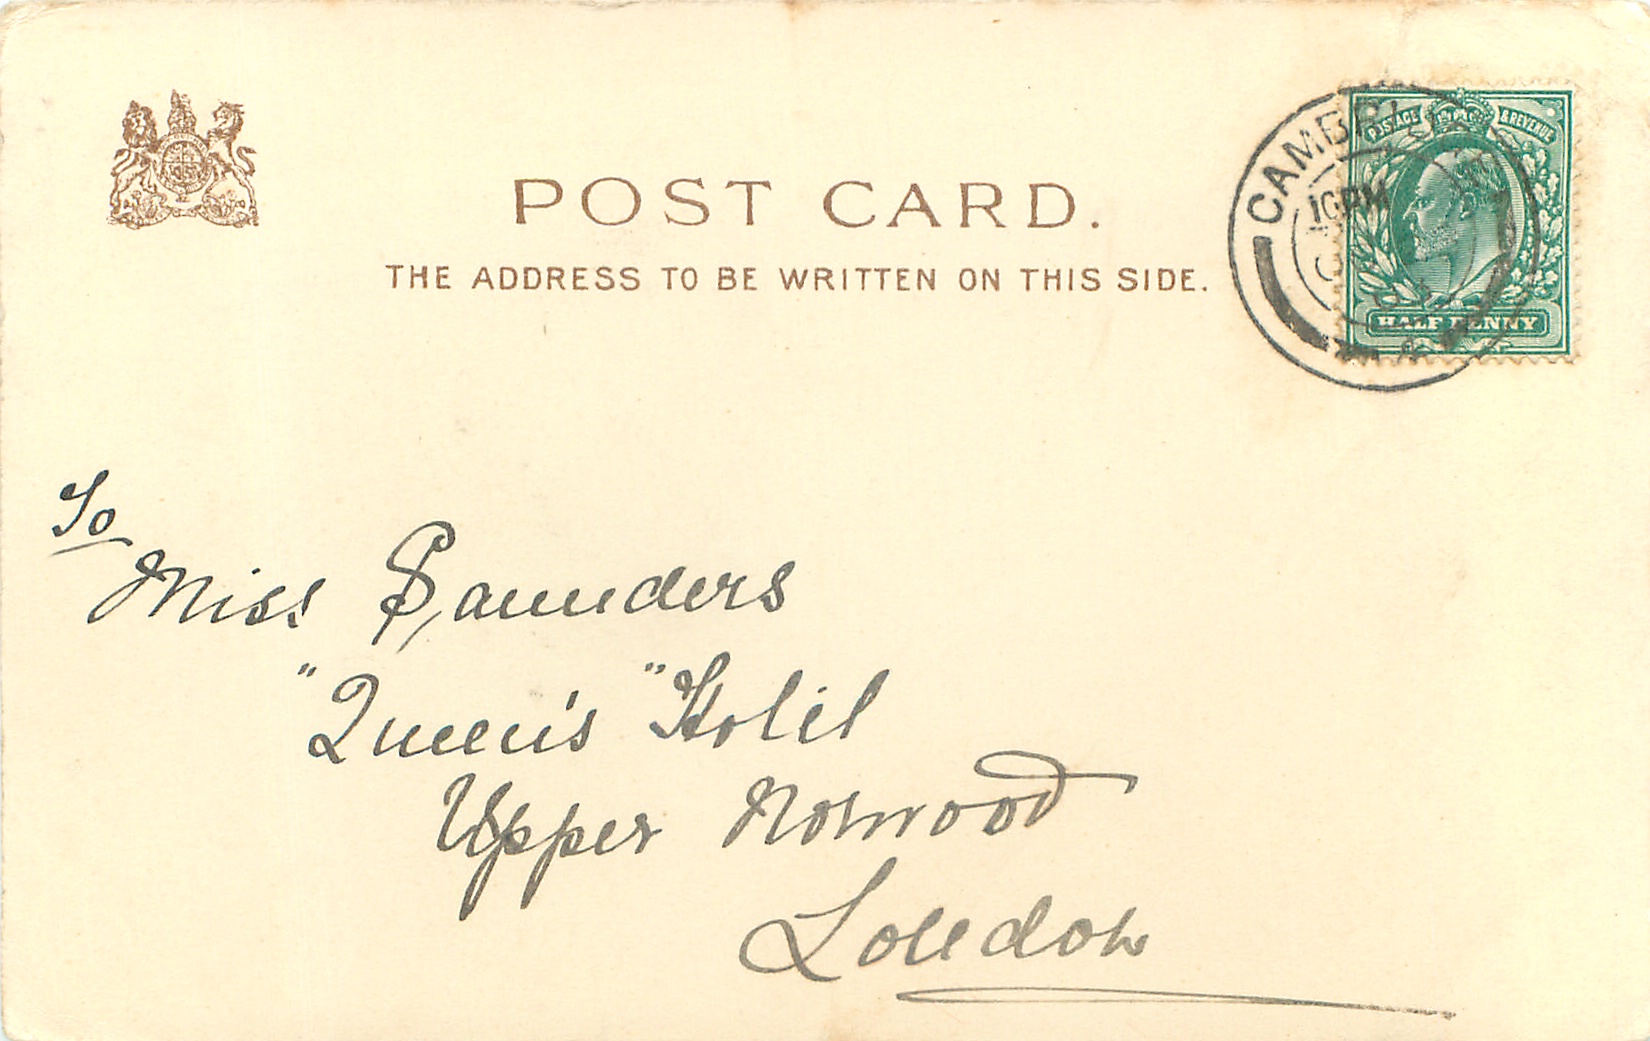 POST CARD.
THE ADDRESS TO BE WRITTEN ON THIS SIDE.
POSTAGE & REVENUE
HALF PENNY
10 PM
To
Miss Saunders
"Queen's" Hotel
Upper Norwood
London